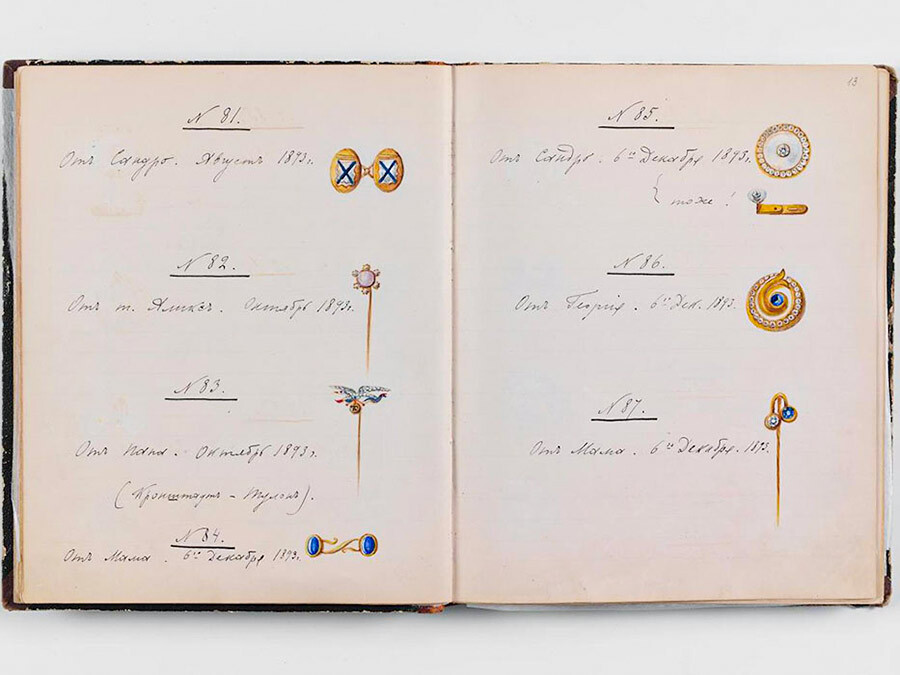 N 81.
Отъ Сандро. Августъ 1893 г.
N 82.
Отъ т. Аликсъ. Октябрь 1893 г.
N 83.
Отъ Папа. Октябрь 1893 г.
(Кронштадтъ - Тулонъ).
N 84.
Отъ Мама. 6го Декабря 1893 г.
13
N 85.
Отъ Сандро. 6го Декабря 1893 г.
тоже!
N 86.
Отъ Георгія. 6го Дек. 1893.
N 87.
Отъ Мама. 6го Декабря. 1893.